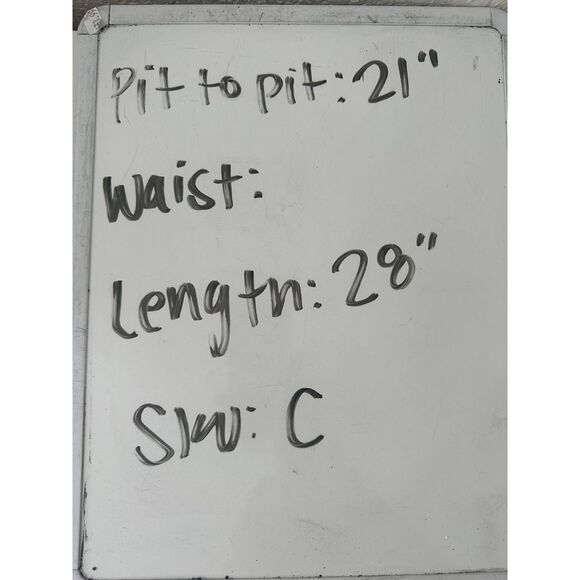 Pit to pit: 21"
Waist:
Length: 28"
SKU: C